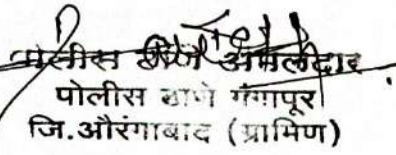 पोलीस ठाणे अंमलदार
पोलीस ठाणे गंगापूर
जि.औरंगाबाद (ग्रामिण)